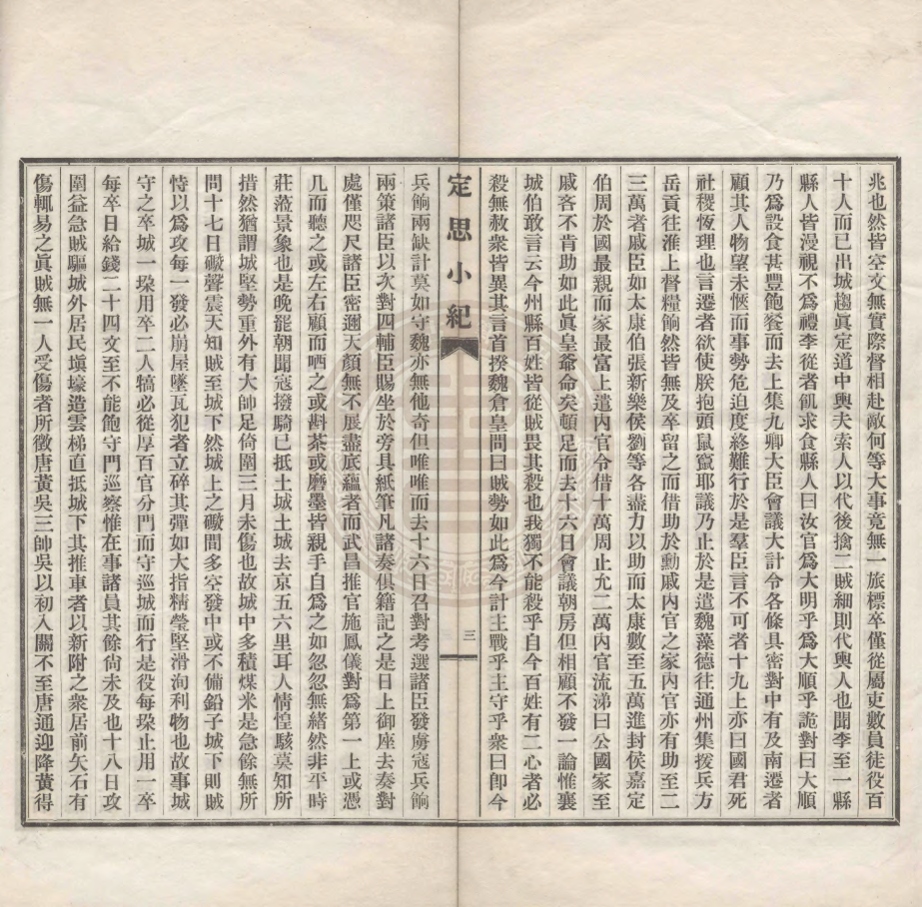 兆也然皆空文無實際督相赴敵何等大事竟無一旅標卒僅從屬吏數員徒役百
十人而已出城趨眞定道中輿夫索人以代後擒二賊細則代輿人也聞李至一縣
縣人皆漫視不爲禮李從者飢求食縣人曰汝官爲大明乎爲大順乎詭對曰大順
乃爲設食甚豐飽餐而去上集九卿大臣會議大計令各條具密對中有及南遷者
顧其人物望未愜而事勢危迫度終難行於是羣臣言不可者十九上亦曰國君死
社稷恆理也言遷者欲使朕抱頭鼠竄耶議乃止於是遣魏藻德往通州集援兵方
岳貢往淮上督糧餉然皆無及卒留之而借助於勳戚內官之家內官亦有助至二
三萬者戚臣如太康伯張新樂侯劉等各盡力以助而太康數至五萬進封侯嘉定
伯周於國最親而家最富上遣內官令借十萬周止允二萬內官流涕曰公國家至
戚客不肯助如此眞皇爺命矣頓足而去十六日會議朝房但相顧不發一論惟襄
城伯敢言云今州縣百姓皆從賊畏其殺也我獨不能殺乎自今百姓有二心者必
殺無赦衆皆異其言首揆魏倉皇問曰賊勢如此爲今計主戰乎主守乎衆曰卽今
定思小紀
三
兵餉兩缺計莫如守魏亦無他奇但唯唯而去十六日召對考選諸臣發虜寇兵餉
兩策諸臣以次對四輔臣賜坐於旁具紙筆凡諸奏俱籍記之是日上御座去奏對
處僅咫尺諸臣密邇天顏無不展盡底蘊者而武昌推官施鳳儀對爲第一上或憑
几而聽之或左右顧而哂之或斟茶或磨墨皆親手自爲之如忽忽無緒然非平時
莊蒞景象也是晚罷朝聞寇撥騎已抵土城土城去京五六里耳人情惶駭莫知所
措然猶謂城堅勢重外有大帥足倚圍三月未傷也故城中多積煤米是急餘無所
問十七日礮聲震天知賊至城下然城上之礮間多空發中或不備鉛子城下則賊
恃以爲攻每一發必崩屋墜瓦犯者立碎其彈如大指精瑩堅滑洵利物也故事城
守之卒城一垛用卒二人犒必從厚百官分門而守巡城而行是役每垛止用一卒
每卒日給錢二十四文至不能飽守門巡察惟在事諸員其餘尙未及也十八日攻
圍益急賊驅城外居民塡壕造雲梯直抵城下其推車者以新附之衆居前矢石有
傷輒易之眞賊無一人受傷者所徵唐黃吳三帥吳以初入關不至唐通迎降黃得